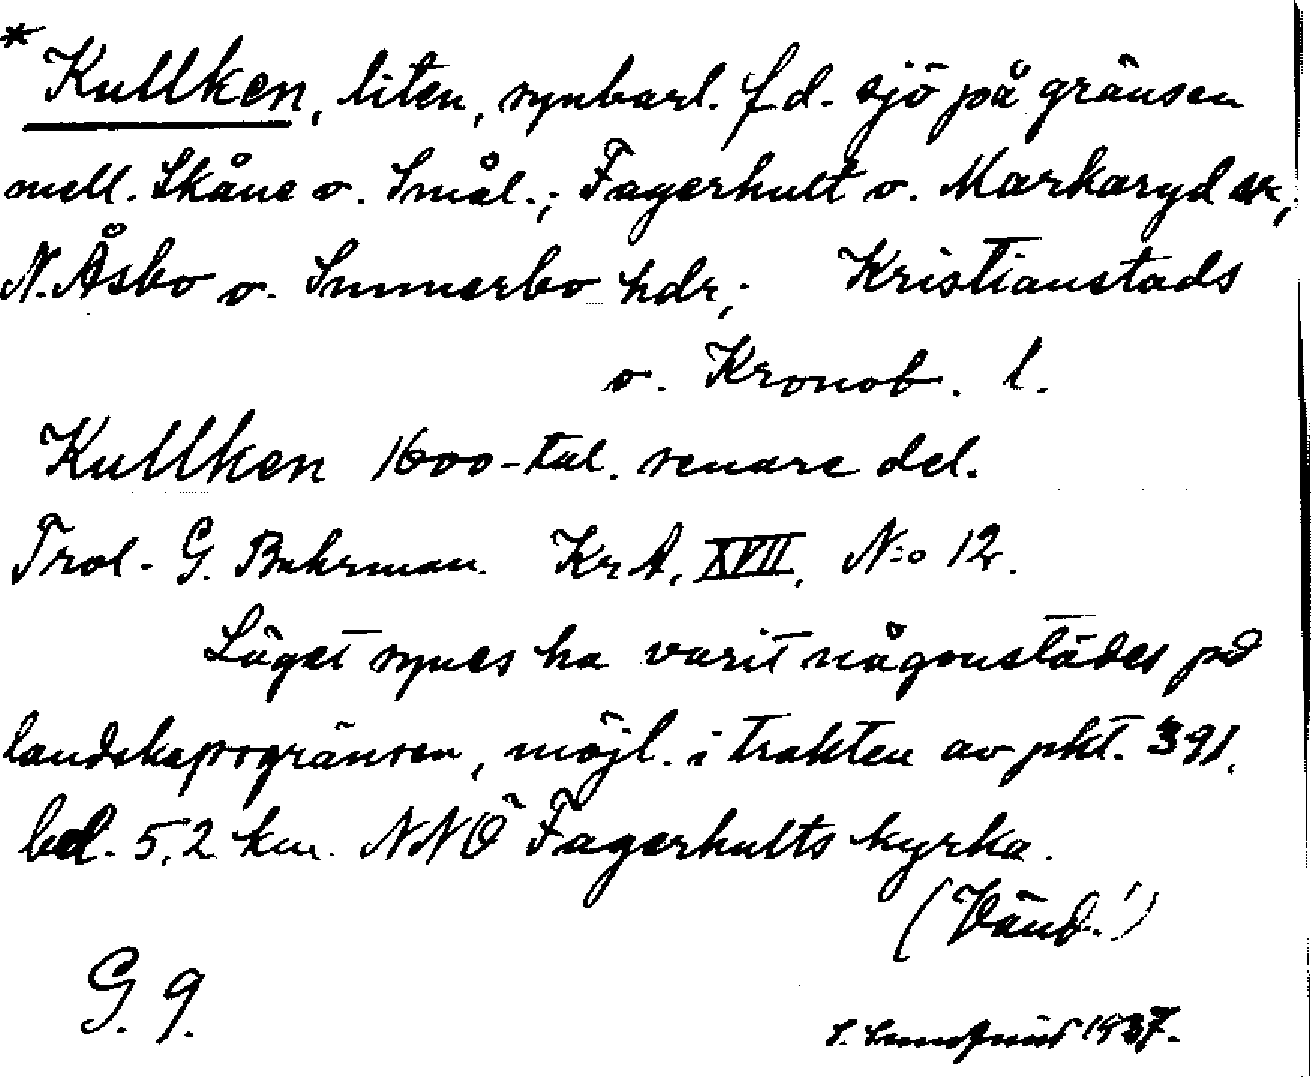 * Kullken, liten, synbarl. f.d. sjö på gränsen
mell. Skåne o. Smål.; Fagerhult o. Markaryd sr;
N. Åsbo o. Sunnerbo hdr; Kristianstads
o. Kronob. l.
Kullken 1600-tal. senare del.
Trol. G. Buhrman KrA, XVII, N:o 12.
Läget synes ha varit någonstädes på
landskapsgränsen, möjl. i trakten av pkt. 391,
bel. 5,2 km. NNÖ Fagerhults kyrka.
(Vänd!)
G. 9.
S. Lundqvist 1937.